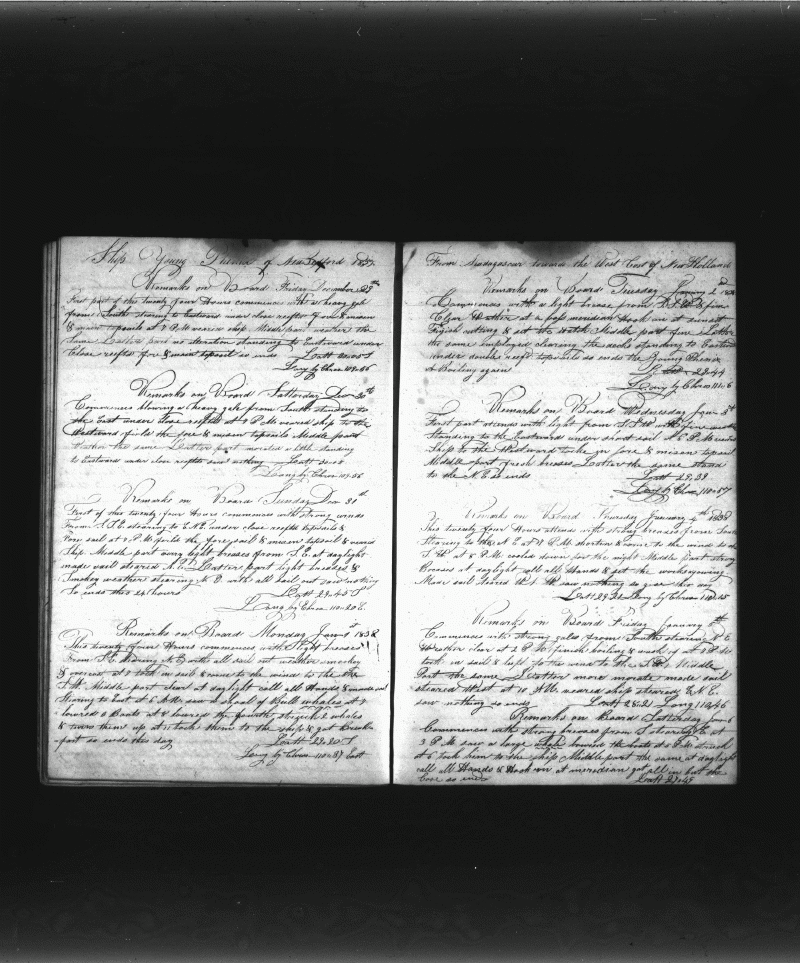 Ship Young Phenix of New Bedford 1837
Remarks on Board Friday December 29th
First part of this twenty four Hours commences with a heavy gale
from South stearing to Eastward under close reefs fore & main
& main topsails at 7 P M weared ship Middle part weather the
same Latter part no alteration standing to Eastward under
Close reefed fore & main topsail so ends Latt 30.05 S
Long by Chron 109.56
Remarks on Board Saturday Dec 30th
Commences blowing a heavy gale from South standing to
the East under close reefs at 7 P M weared ship to the
Westward furld the fore & main topsails Middle part
Weather the same Latter part moderate standing
to Eastward under close reefs saw nothing Latt 30.03
Long by Chron 109.56
Remarks on Board Sunday Dec 31st
First of this twenty four hours commences with strong winds
From S.E. stearing to E.N.E. under close reefed topsails &
Fore sail at 7 P M furld the fore sail & main topsail & weared
Ship Middle part light breases from S.E. at daylight
made sail steared N.E. Latter part light breases &
Smokey weather stearing N E with all sail out saw nothing
So ends this 24 hours Latt 29.45 S
Long by Chron 110.20 E
Remarks on Board Monday Jan 1st 1838
This twenty four Hours commences with light breases
From S.E. stearing N E with all sail out weather smokey
at took in sail & came to the wind to the
S.W. Middle part clear at daylight call all Hands & made sail
Stearing to East at 6 A M saw a shoal of Bull whales at 7
lowered 3 Boats at 8 lowered the fourth struck 2 whales
& turn them up at took them to the ship & got Breakfast
so ends this day Latt 29.20 S
Long by Chron 110.37 East
From Madagascar toward the West Coast of New Holland
Remarks on Board Tuesday January 2d 1838
Commences with a light brease from S.S.E. & fine
Clear Wether at a past meridian Hook in at sunset
Finish cutting & set the watch Middle part fine Latter
the same employed clearing the decks standing to Eastward
under double reefs topsails so ends the Young Phenix
A Boiling again Latt 29.44
Long by Chron 111.16
Remarks on Board Wednesday Janr 3d
First part attends with light from S S W with fine weather
Standing to the Eastward under short sail at 6 P M weared
Ship to the Westward take in fore & main topsail
Middle part fresh breases Latter the same stand
to the N.E. so ends Latt 29.39
Long by Chron 110.57
Remarks on Board Thursday January 4th 1838
This twenty four Hours attends with strong breases from South
Stearing to the N E at 7 P M shorten & came to the wind heads
S W at 8 P M cooled down for the night Middle Part strong
Breases at daylight call all Hands & set the works agoing
Made sail steared N E saw nothing so goes this day
Latt 29.32 Long by Chron 110.15
Remarks on Board Friday January 5th
Commences with strong gales from South stearing N E
Weather clear at 2 P M finish boiling
took in sail & luft to the wind to the S.W. Middle
Part the same Latter more morate made sail
steared West at 10 A M weared ship steared E N E
saw nothing so ends Latt 28.21 Long 110.46
Remarks on Board Saturday Jan 6
Commences with strong breases from S stearing E at
3 P M saw a large whale lowered the boats at 5 P M struck
at 6 took him to the ship Middle part the same at daylight
call all Hands & Hook on at meridian got all in but the
Case so ends Latt 29.49